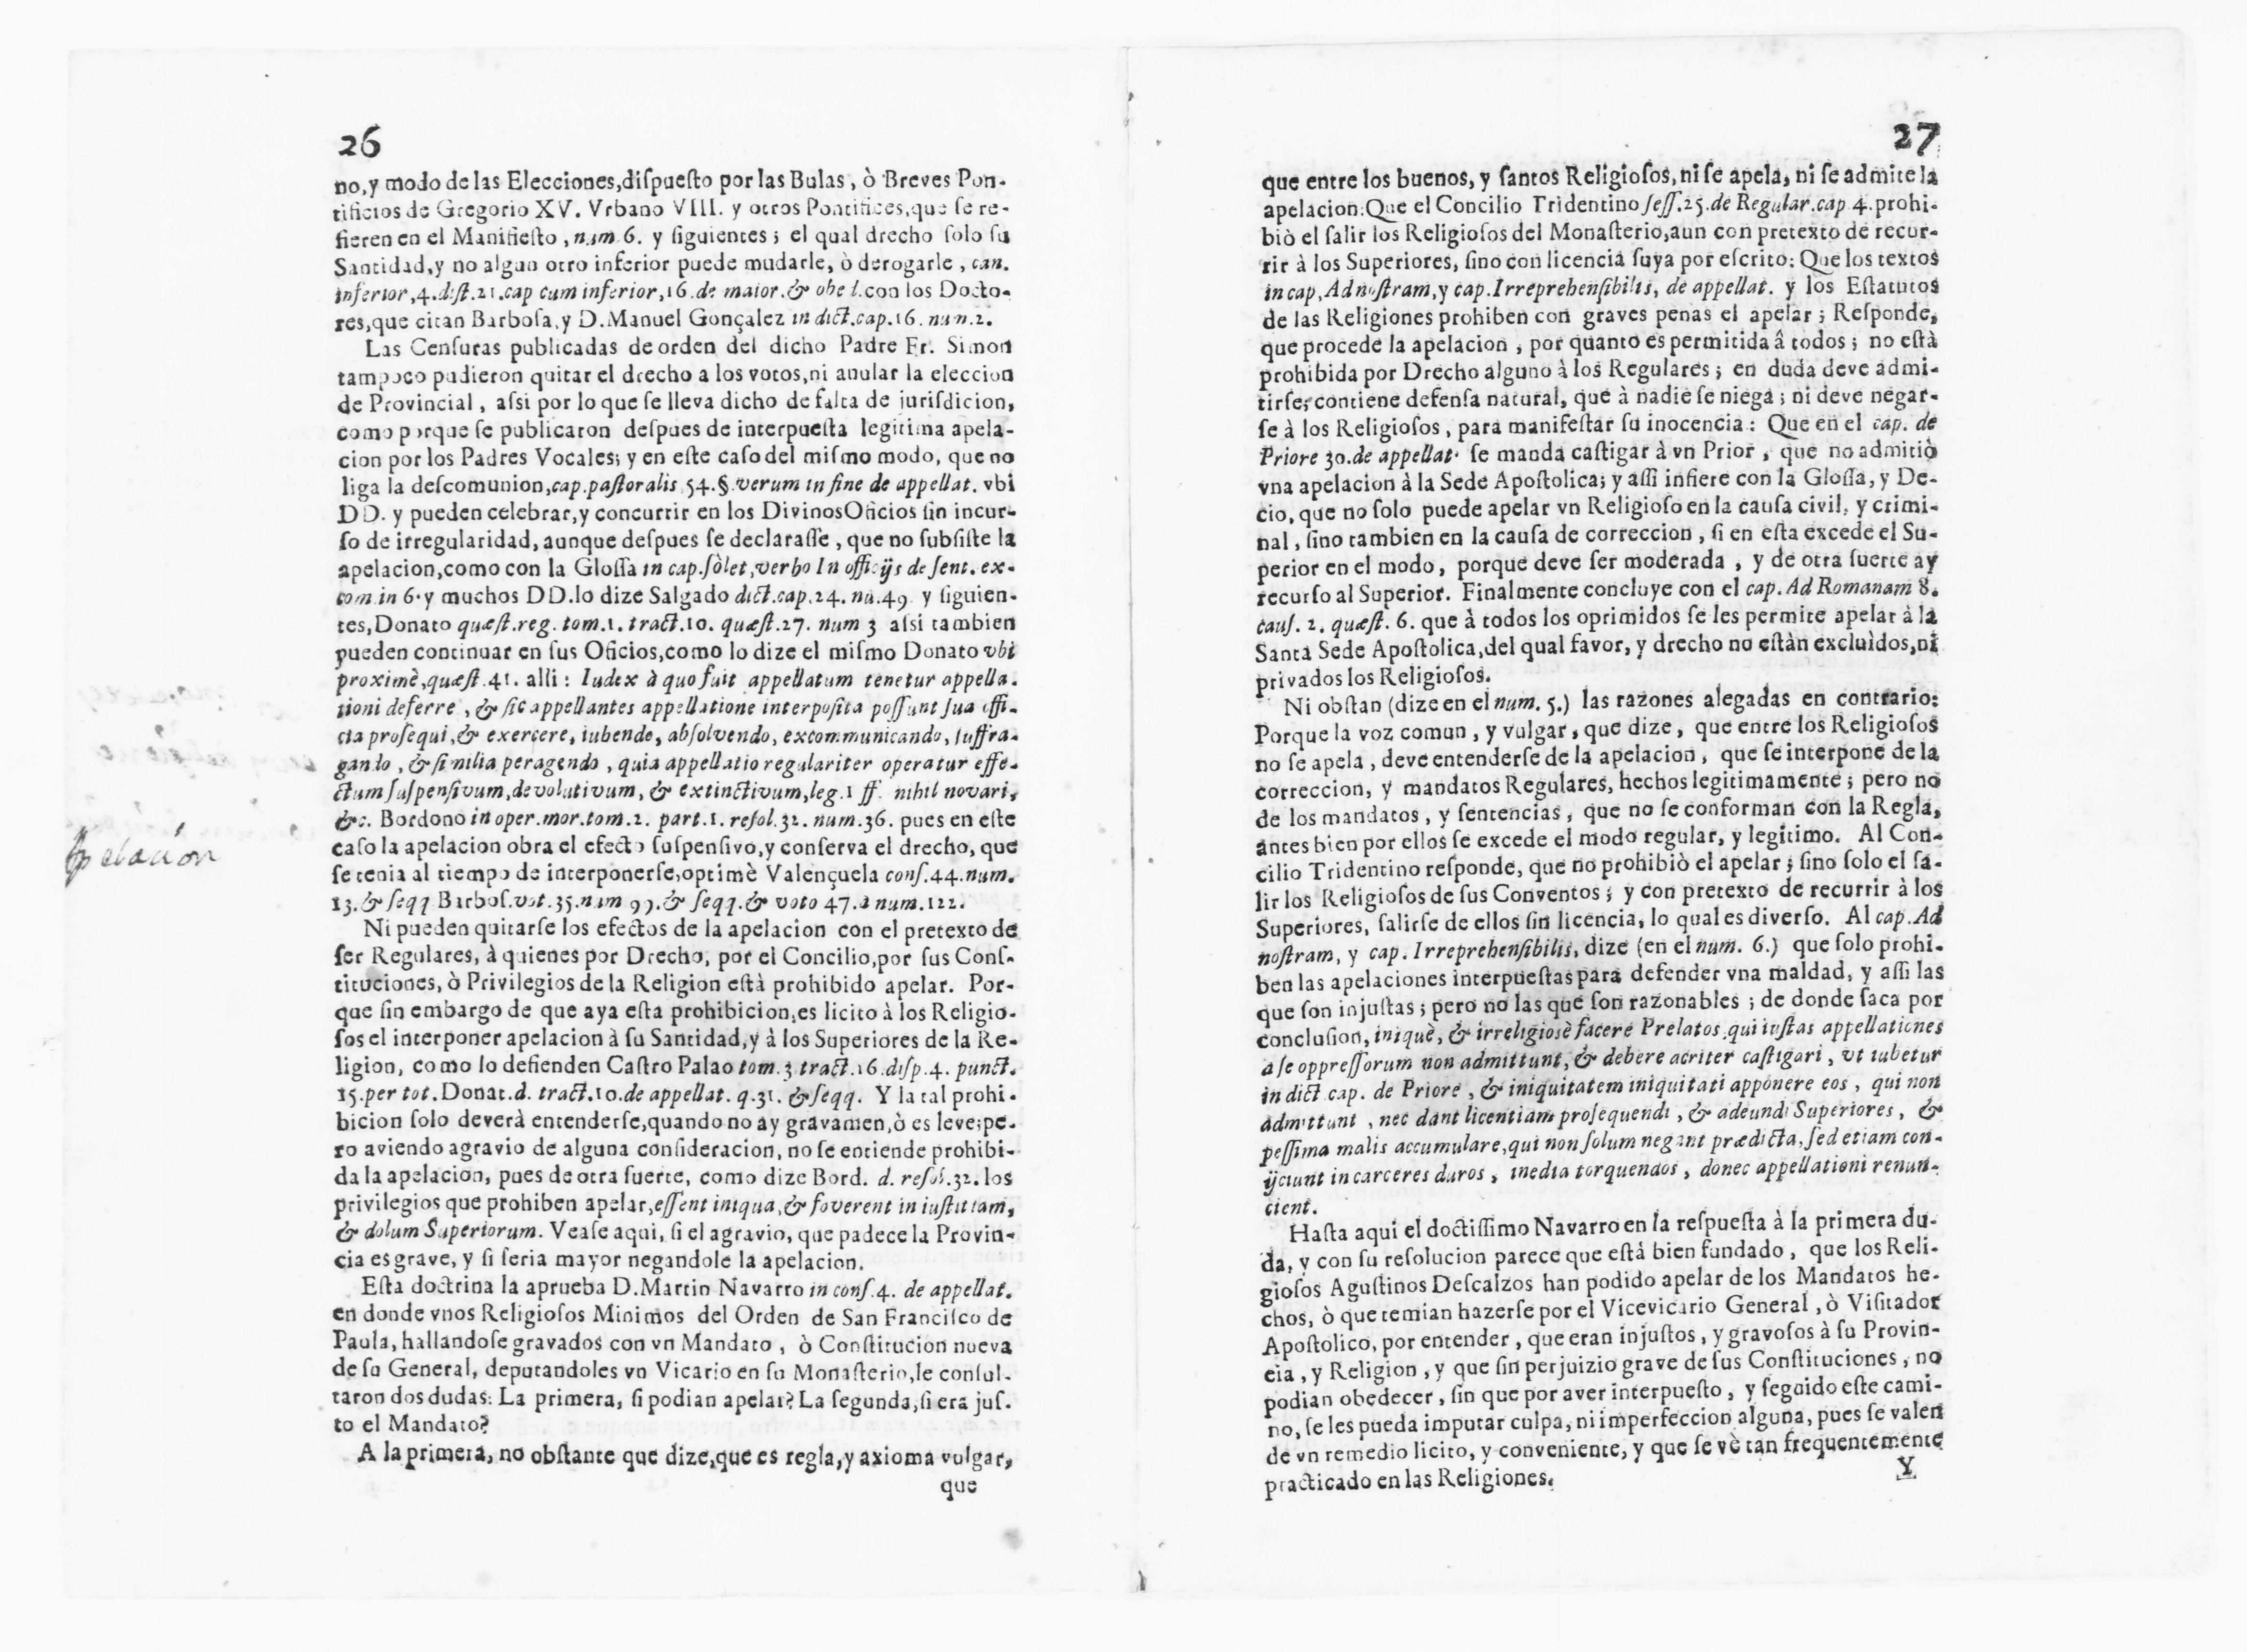 26
no, y modo de las Elecciones, diſpueſto por las Bulas, ò Breves Pon-
tificios de Gregorio XV. Vrbano VIII. y otros Pontifices, que ſe re-
fieren en el Manifieſto, num. 6. y ſiguientes; el qual drecho ſolo ſu
Santidad, y no algun otro inferior puede mudarle, ò derogarle, can.
inferior, 4. diſt. 21. cap cum inferior, 16. de maior. & obed. con los Docto-
res, que citan Barboſa, y D. Manuel Gonçalez in dict. cap. 16. nun. 2.
Las Cenſuras publicadas de orden del dicho Padre Fr. Simon
tampoco pudieron quitar el drecho a los votos, ni anular la eleccion
de Provincial, aſsi por lo que ſe lleva dicho de falta de juriſdicion,
como porque ſe publicaron deſpues de interpueſta legitima apela-
cion por los Padres Vocales; y en eſte caſo del miſmo modo, que no
liga la deſcomunion, cap. paſtoralis 54. §. verum in fine de appellat. vbi
DD. y pueden celebrar, y concurrir en los Divinos Oficios ſin incur-
ſo de irregularidad, aunque deſpues ſe declaraſſe, que no ſubſiſte la
apelacion, como con la Gloſſa in cap. ſòlet, verbo In officijs de ſent. ex-
com. in 6. y muchos DD. lo dize Salgado dict. cap. 24. nu. 49 y ſiguien-
tes, Donato quæſt. reg. tom. 1. tract. 10. quæſt. 27. num 3 aſsi tambien
pueden continuar en ſus Oficios, como lo dize el miſmo Donato vbi
proximè, quæſt. 41. alli: Iudex à quo fuit appellatum tenetur appella-
tioni deferre, & ſic appellantes appellatione interpoſita poſſunt ſua offi-
cia proſequi, & exercere, iubendo, abſolvendo, excommunicando, ſuffra-
gando, & ſimilia peragendo, quia appellatio regulariter operatur effe-
ctum ſuſpenſivum, devolutivum, & extinctivum, leg. 1 ff. nihil novari,
&c. Bordono in oper. mor. tom. 2. part. 1. reſol. 32. num. 36. pues en eſte
caſo la apelacion obra el efecto ſuſpenſivo, y conſerva el drecho, que
ſe tenia al tiempo de interponerſe, optimè Valençuela conſ. 44. num.
13. & ſeqq Barboſ. vot. 35. num 99. & ſeqq. & voto 47. à num. 122.
Apelación
Ni pueden quitarſe los efectos de la apelacion con el pretexto de
ſer Regulares, à quienes por Drecho, por el Concilio, por ſus Conſ-
tituciones, ò Privilegios de la Religion eſtà prohibido apelar. Por-
que ſin embargo de que aya eſta prohibicion, es licito à los Religio-
ſos el interponer apelacion à ſu Santidad, y à los Superiores de la Re-
ligion, como lo defienden Caſtro Palao tom. 3 tract. 16. diſp. 4. punct.
15. per tot. Donat. d. tract. 10. de appellat. q. 31. & ſeqq. Y la tal prohi-
bicion ſolo deverà entenderſe, quando no ay gravamen, ò es leve; pe-
ro aviendo agravio de alguna conſideracion, no ſe entiende prohibi-
da la apelacion, pues de otra ſuerte, como dize Bord. d. reſol. 32. los
privilegios que prohiben apelar, eſſent iniqua, & foverent iniuſtitiam,
& dolum Superiorum. Veaſe aqui, ſi el agravio, que padece la Provin-
cia es grave, y ſi ſeria mayor negandole la apelacion.
Eſta doctrina la aprueba D. Martin Navarro in conſ. 4. de appellat.
en donde vnos Religioſos Minimos del Orden de San Franciſco de
Paula, hallandoſe gravados con vn Mandato, ò Conſtitucion nueva
de ſu General, deputandoles vn Vicario en ſu Monaſterio, le conſul-
taron dos dudas: La primera, ſi podian apelar? La ſegunda, ſi era juſ-
to el Mandato?
A la primera, no obſtante que dize, que es regla, y axioma vulgar,
que
27
que entre los buenos, y ſantos Religioſos, ni ſe apela, ni ſe admite la
apelacion: Que el Concilio Tridentino ſeſſ. 25. de Regular. cap 4. prohi-
biò el ſalir los Religioſos del Monaſterio, aun con pretexto de recur-
rir à los Superiores, ſino con licencia ſuya por eſcrito: Que los textos
in cap, Ad noſtram, y cap. Irreprehenſibilis, de appellat. y los Eſtatutos
de las Religiones prohiben con graves penas el apelar; Reſponde,
que procede la apelacion, por quanto es permitida â todos; no eſtà
prohibida por Drecho alguno à los Regulares; en duda deve admi-
tirſe; contiene defenſa natural, que à nadie ſe niega; ni deve negar-
ſe à los Religioſos, para manifeſtar ſu inocencia: Que en el cap. de
Priore 30. de appellat. ſe manda caſtigar à vn Prior, que no admitiò
vna apelacion à la Sede Apoſtolica; y aſſi infiere con la Gloſſa, y De-
cio, que no ſolo puede apelar vn Religioſo en la cauſa civil, y crimi-
nal, ſino tambien en la cauſa de correccion, ſi en eſta excede el Su-
perior en el modo, porque deve ſer moderada, y de otra ſuerte ay
recurſo al Superior. Finalmente concluye con el cap. Ad Romanam 8.
cauſ. 2. quæſt. 6. que à todos los oprimidos ſe les permite apelar à la
Santa Sede Apoſtolica, del qual favor, y drecho no eſtàn excluìdos, ni
privados los Religioſos.
Ni obſtan (dize en el num. 5.) las razones alegadas en contrario:
Porque la voz comun, y vulgar, que dize, que entre los Religioſos
no ſe apela, deve entenderſe de la apelacion, que ſe interpone de la
correccion, y mandatos Regulares, hechos legitimamente; pero no
de los mandatos, y ſentencias, que no ſe conforman con la Regla,
antes bien por ellos ſe excede el modo regular, y legitimo. Al Con-
cilio Tridentino reſponde, que no prohibiò el apelar; ſino ſolo el ſa-
lir los Religioſos de ſus Conventos; y con pretexto de recurrir à los
Superiores, ſalirſe de ellos ſin licencia, lo qual es diverſo. Al cap. Ad
noſtram, y cap. Irreprehenſibilis, dize (en el num. 6.) que ſolo prohi-
ben las apelaciones interpueſtas para defender vna maldad, y aſſi las
que ſon injuſtas; pero no las que ſon razonables; de donde ſaca por
concluſion, iniquè, & irreligiosè facere Prelatos qui iuſtas appellationes
a ſe oppreſſorum non admittunt, & debere acriter caſtigari, vt iubetur
in dict cap. de Priore, & iniquitatem iniquitati apponere eos, qui non
admittunt, nec dant licentiam proſequendi, & adeundi Superiores, &
peſſima malis accumulare, qui non ſolum negant prædicta, ſed etiam con-
ijciunt in carceres duros, inedia torquendos, donec appellationi renun-
cient.
Haſta aqui el doctiſſimo Navarro en la reſpueſta à la primera du-
da, y con ſu reſolucion parece que eſtà bien fundado, que los Reli-
gioſos Aguſtinos Deſcalzos han podido apelar de los Mandatos he-
chos, ò que temian hazerſe por el Vicevicario General, ò Viſitador
Apoſtolico, por entender, que eran injuſtos, y gravoſos à ſu Provin-
cia, y Religion, y que ſin perjuizio grave de ſus Conſtituciones, no
podian obedecer, ſin que por aver interpueſto, y ſeguido eſte cami-
no, ſe les pueda imputar culpa, ni imperfeccion alguna, pues ſe valen
de vn remedio licito, y conveniente, y que ſe vè tan frequentemente
practicado en las Religiones.
Y